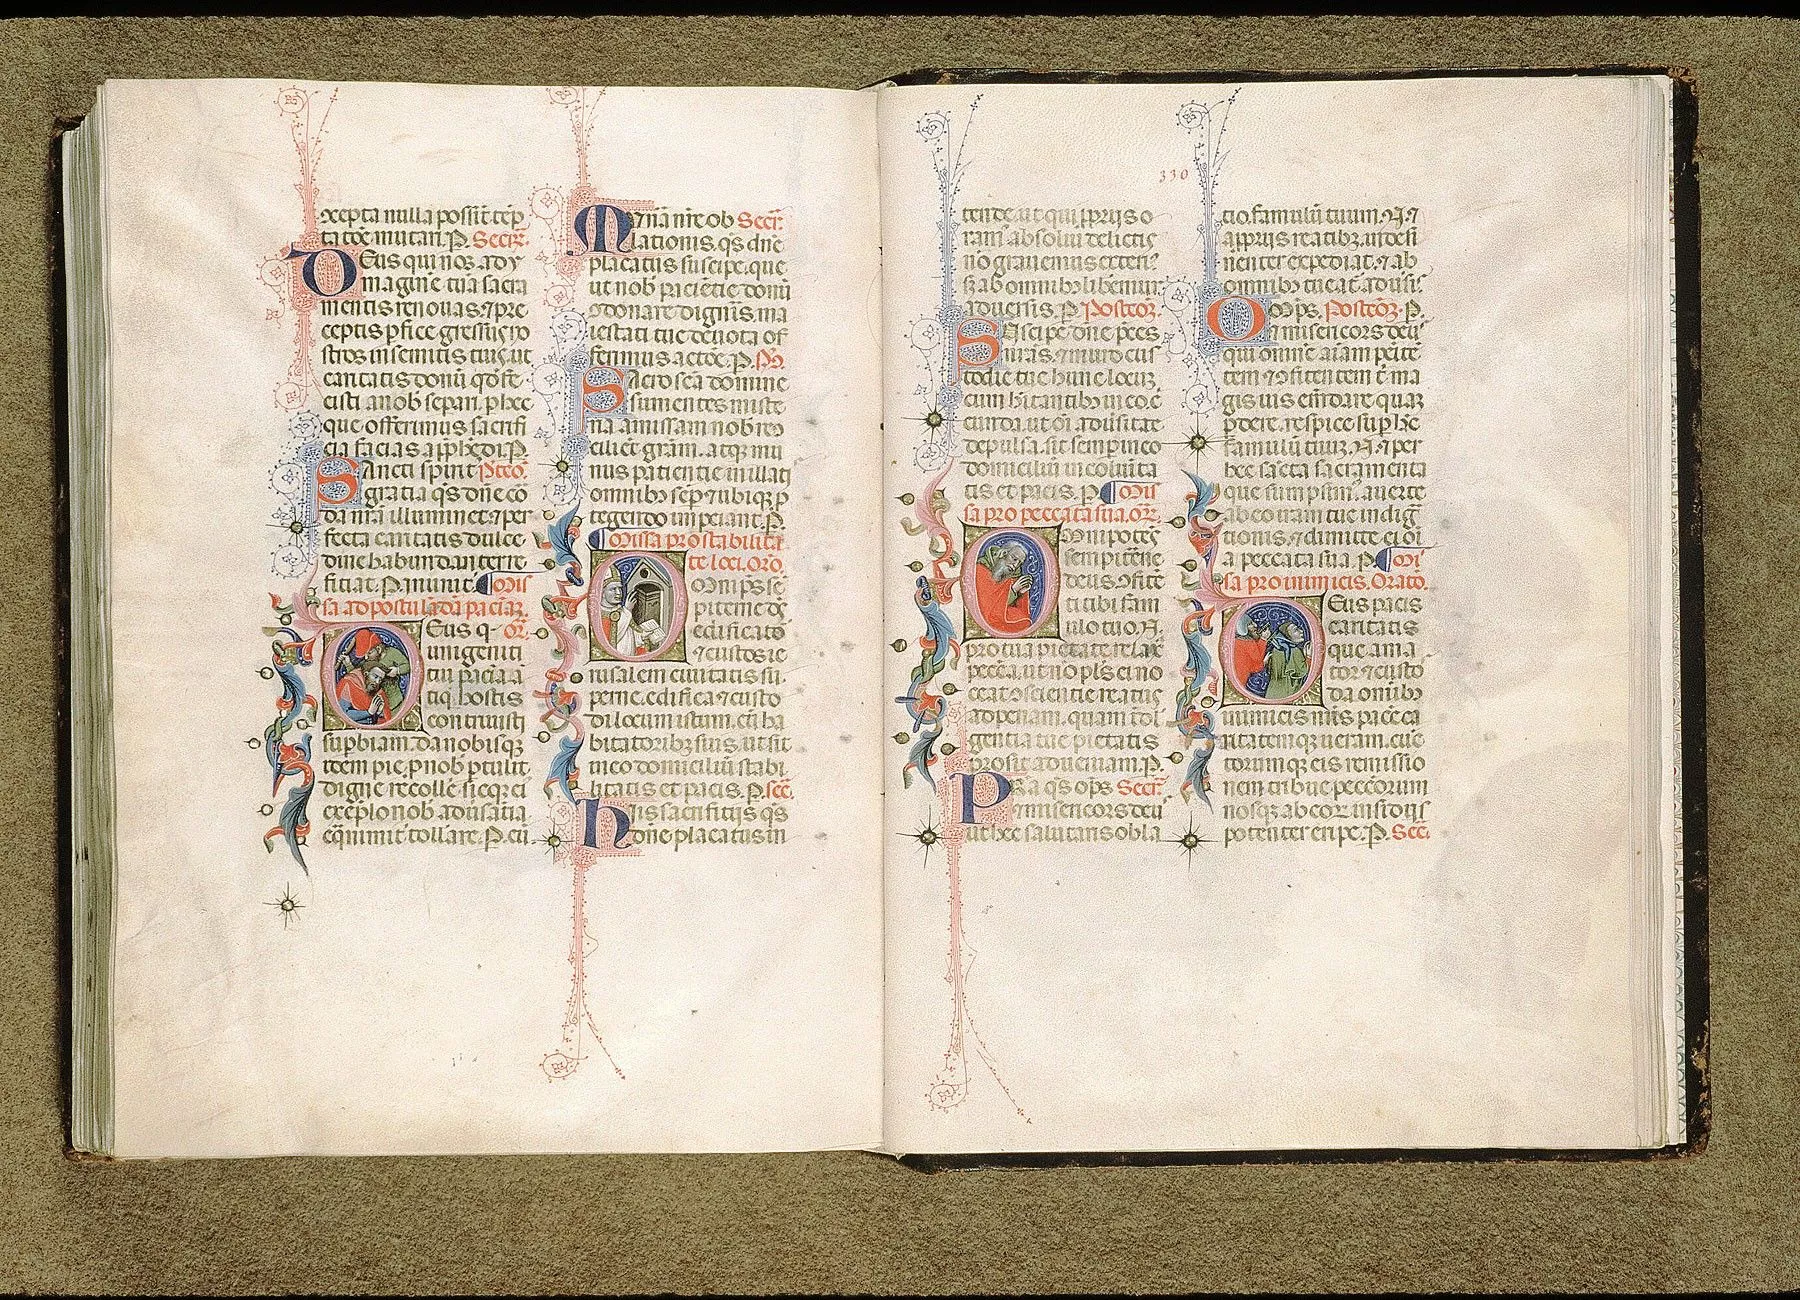 xcepta nulla possit tēp
tatōe mutari. P. Secr̄.
Deus qui nos ad y
magine tuā sacra
mentis renouas ⁊ pre
ceptis p̄fice gressus n̄o
stros in semitis tuis, ut
caritatis donū q̄ō fe
cisti a nob̄ separi. p̄ hec
que offerimus sacrifi
cia facias app̄hēdi. P.
Sancti spirit̄ Pcō.
gratia q̄s dn̄e co
da nr̄a illuminet: ⁊ per
fecta caritatis dulce
dine habundanter re
ficiat. P. in unit̄. Mis
sa ad postulādā paciaz̄.
Deus q̄ or̄.
unigeniti
tui paciā ā
tiq̄ hostis
contriuisti
supbiam: da nobis q̄
idem pie p nob̄ ptulit
digne recolle: sicq̄ ei
exēplo nob̄ adusātia
eq̄nimit̄ tollare. P. eū
Mūa nr̄e ob Secr̄.
lationis q̄s dn̄e
placatus suscipe. que
ut nob̄ paciētie donū
⁊donare digneris. ma
iestati tue deuota of
ferimus actōe. P. Pō
Sacrosc̄a domine
sumentes miste
ria amissam nob̄ rc̄o
ciliet grām. atq̄ mu
nus patientie in illati
omnibꝫ sep̄ ⁊ ubiq̄ p
tegendo impetiant. P.
Missa pro stabilita
te loci. Orō.
Omp̄s sē
piterne dꝰ
edificatō
⁊ custos ie
rusalem ciuitatis su
perne. edifica ⁊ custo
di locum istum. cū ha
bitatoribꝫ suis. ut sit
in eo domiciliū stabi
litatis et pacis. P. sec̄.
His sacrificijs q̄s
dn̄e placatus in
330
tende. ut qui p̄prijs o
ram̄ absolui delictis
nō grauemus exterī
s̄ ab omnibꝫ liberemur
aduersis. P. Postcō.
Suscipe dn̄e p̄ces
nr̄as. ⁊ muro cus
todie tue hunc locum
cum hītantibꝫ in eo. c̄
cūda. ut oī aduersitate
depulsa. sit semp̄ in eo
domiciliū incolumita
tis et pacis. P. Mis
sa pro peccatis suis. Or̄.
Omnipotēs
sempiterne
deus. ⁊fitē
ti tibi fam
ulo tuo. N.
pro tua pietate relax̄
pecc̄a. ut nō pl̄s ei no
ceat ⁊scientie reatus
ad penam. quam īdl̄
gentia tue pietatis
prosit ad ueniam. P.
Presta q̄s op̄s Secr̄.
⁊ misericors deus
ut hec salutaris obla
tio. famulū tuum. N. ⁊
a p̄prijs reatibꝫ indesi
nenter expediat. ⁊ ab
omnibꝫ tueat̄ aduersis.
Oop̄s. Postcō. P.
⁊ misericors deus
qui omnē aīam penitē
tem ⁊ ⁊fitentem t̄ ma
gis uis emēdare quaz
p̄dere. respice sup̄ hc̄
famulū tuum. N. ⁊ per
hec sācta sacramenta
que sumpsim̄. auerte
ab eo iram tue indiḡ
tionis. ⁊ dimitte ei oī
a peccata sua. P. Mi
sa pro inimicis. Oratō.
Deus pacis
caritatis
que ama
tor ⁊ custo
da omībꝫ
inimicis nr̄is pacē ca
ritatemq̄ ueram. cūc
torumq̄ eis remissio
nem tribue peccatorum
nosq̄ ab eor̄ insidijs
potenter eripe. P. Sec̄.